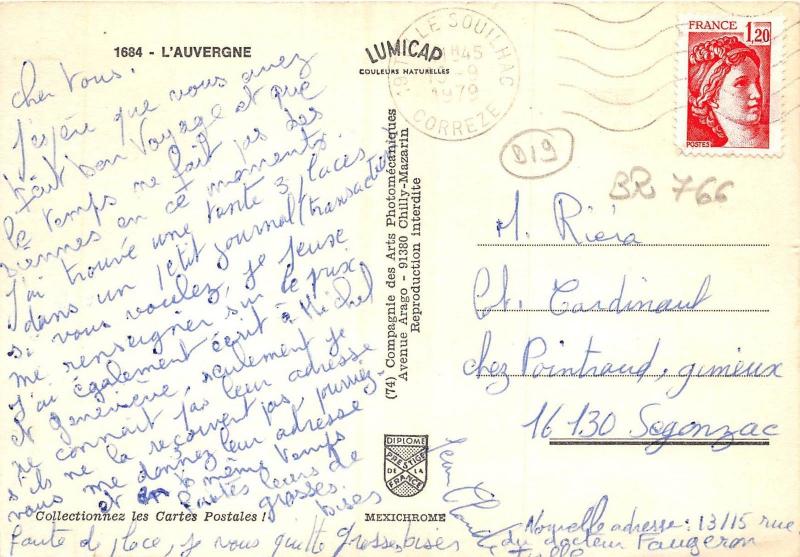 1684 - L'AUVERGNE
LUMICAP
COULEURS NATURELLES
19 TULLE SOUILHAC
1979
CORREZE
FRANCE 1,20
POSTES
D19
BR 766
Cher Vous.
J'espère que vous avez
fait bon voyage et que
le temps ne fait pas des
siennes en ce moment.
J'ai trouvé une tente 3 places
dans un petit journal (transaction
si vous voulez, je peux
me renseigner sur le prix
J'ai également écrit à Michel
et Geneviève, seulement je
ne connaît pas leur adresse
s'ils ne la recouvent pas, pourriez-
vous me donnez leur adresse
et en même temps
faites leurs de
grosses
bises
faute de place, je vous quitte grosses bises
Jean Claude
(74) Compagnie des Arts Photomécaniques
Avenue Arago - 91380 Chilly-Mazarin
Reproduction interdite
DIPLOME
PRESTIGE
DE LA
FRANCE
MEXICHROME
Collectionnez les Cartes Postales !
M. Riéra
Ct. Cardinaut
chez Pointraud, gimeux
16 130 Segonzac
Nouvelle adresse : 13/15 rue
du docteur Faugeron
Tulle